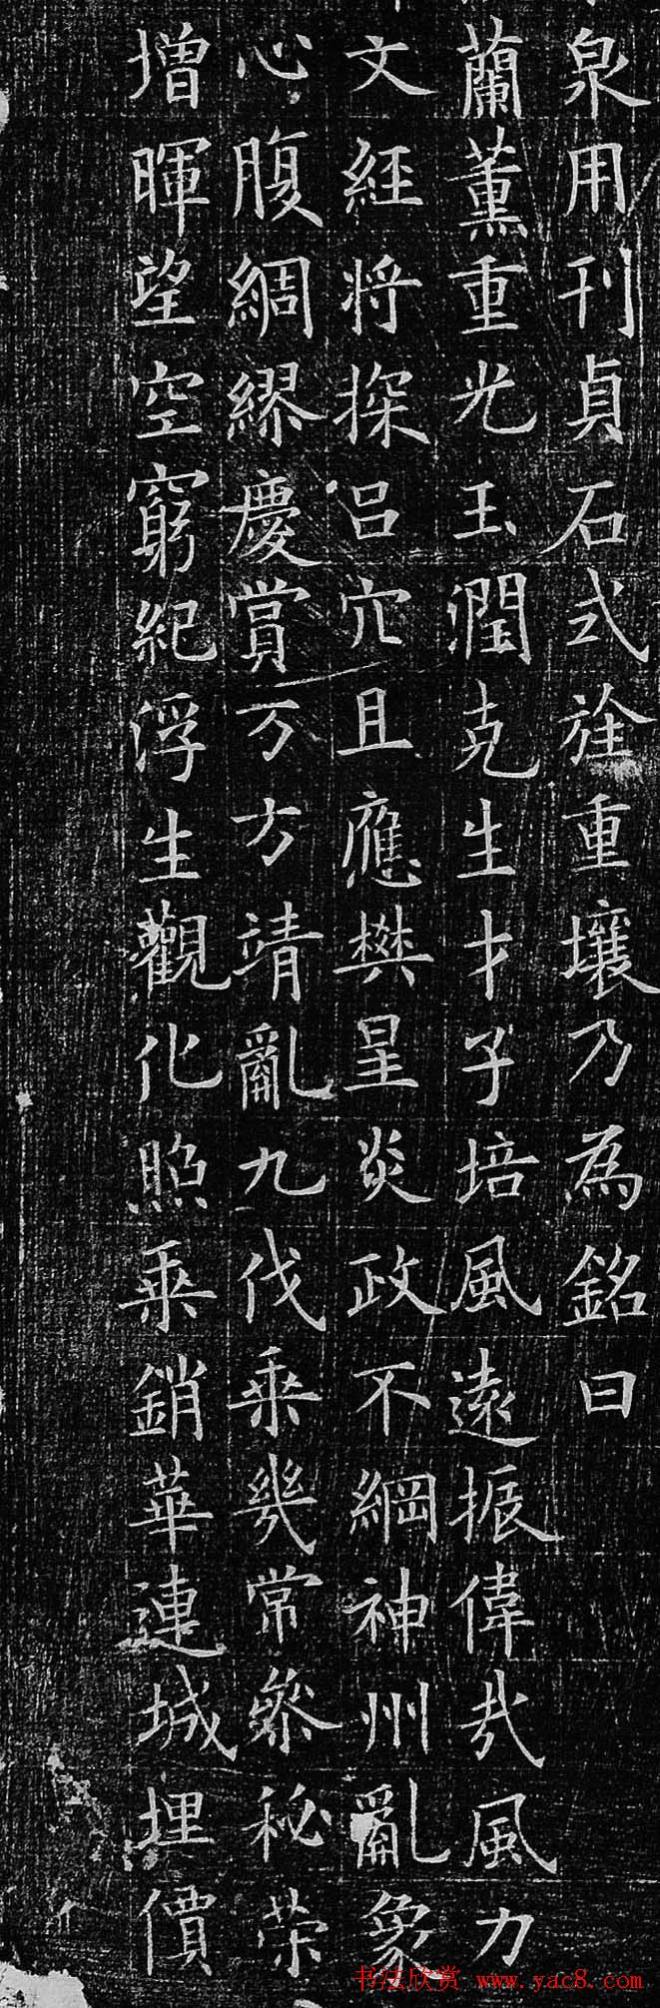 泉用刊貞石式旌重壤乃為銘曰
蘭薰重光玉潤克生才子培風遠振偉哉風力
文經将探呂穴且應樊星炎政不綱神州亂象
心腹綢繆慶賞万方靖亂九伐乘幾常叅秘荣
增暉望空窮紀浮生觀化照乘銷華連城埋價
书法欣赏 www.yac8.com